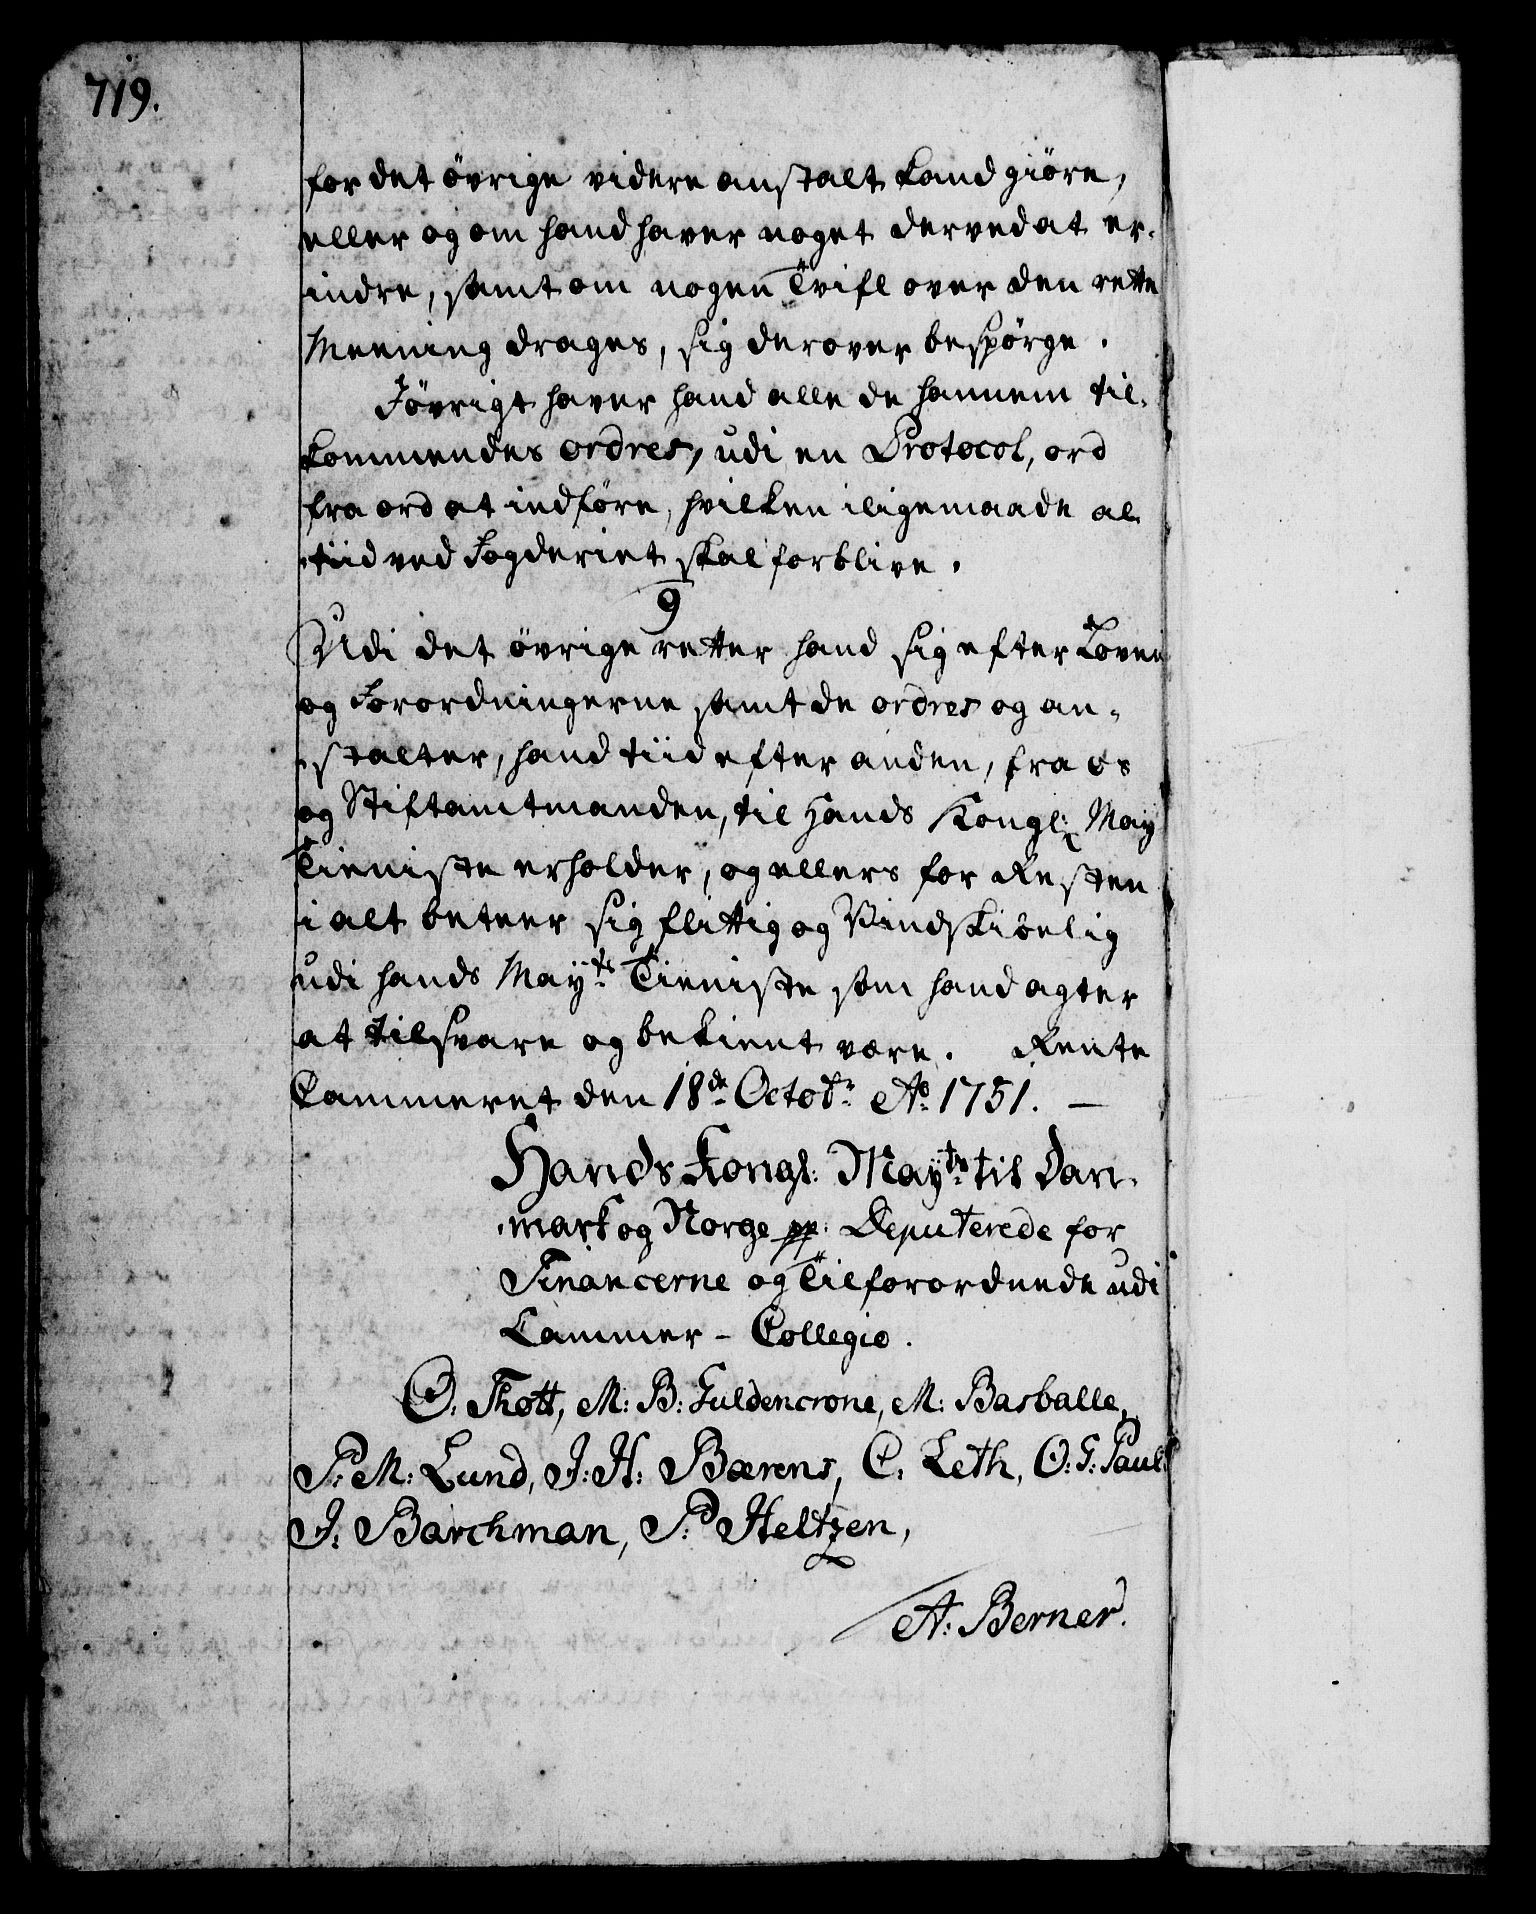 719.
for det övrige videre anstalt kand giöre,
eller og om hand haver noget derved at er-
indre, samt om nogen Tvifl over den rette
Meening drages, sig derover bespörge.
Iövrigt haver hand alle de hannem til-
kommendes ordres, udi en Protocol, ord
fra ord at indföre, hvilken iligemaade al-
tiid ved Fogderiet skal forblive.
9
Udi det övrige retter hand sig efter Loven
og Forordningerne samt de ordres og an-
stalter, hand tiid efter anden, fra os
og Stiftamtmanden, til Hands Kongl: May
Tieniste erholder, og ellers for Resten
i alt beteer sig flittig og Vindskiðelig
udi hands Mayts Tieniste som hand agter
at tilsvare og bekient være. Rente
Cammeret den 18de Octobr Ao 1751. —
Hands Kongl: Mayts til Dan-
mark og Norge pp: Deputerede for
Financerne og Tilforordnede udi
Cammer - Collegio.
O. Thott, M: B: Guldencrone, M: Basballe,
P: M: Lund, J: H: Bærens, C. Leth, O: G: Pauli
J: Barchman, P: Heltzen,
A: Berner.